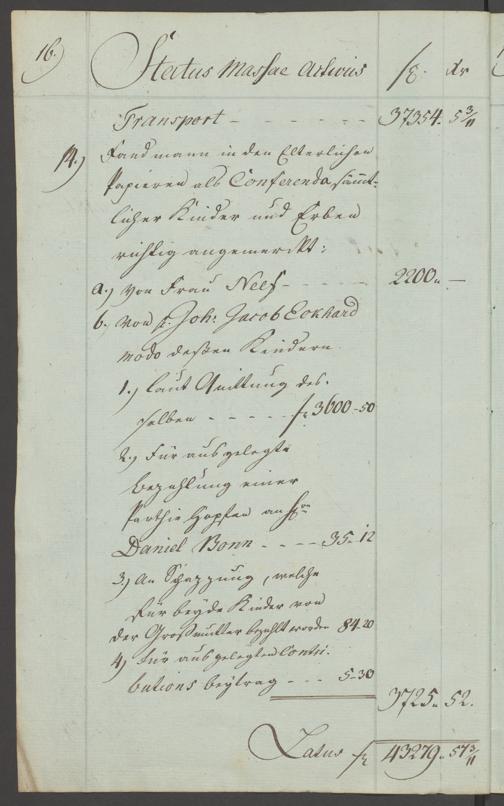 16.)
Status Massae Activus f. Xr
Transport - - - - - - 37354. 5 3/11
14.) Fand mann in den Elterlichen
Papieren als Conferenda sämmt-
licher Kinder und Erben
richtig angemerckt:
a.) von Frau Neef - - - - - 2200 " —
b.) von H. Joh: Jacob Eckhard
modo deßen Kindern
1.) laut Quittung des-
selben - - - - - f. 3600-50
2.) Für ausgelegte
Bezahlung einer
Parthie Hopfen an Hrn
Daniel Bonn - - - - 35-12
3.) An Schazzung, welche
für beyde Kinder von
der Großmutter bezahlt worden 84-20
4.) Für ausgelegten Contri-
butions beytrag - - - 5-30
3725 " 52.
Latus f. 43279 " 57 3/11